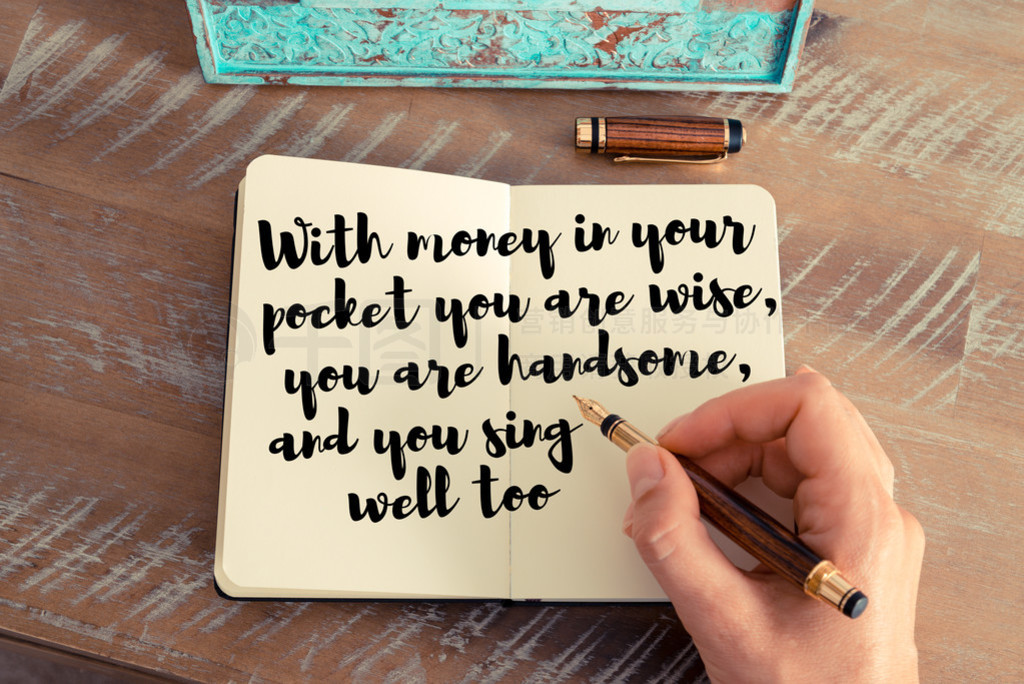 With money in your
pocket you are wise,
you are handsome,
and you sing
well too